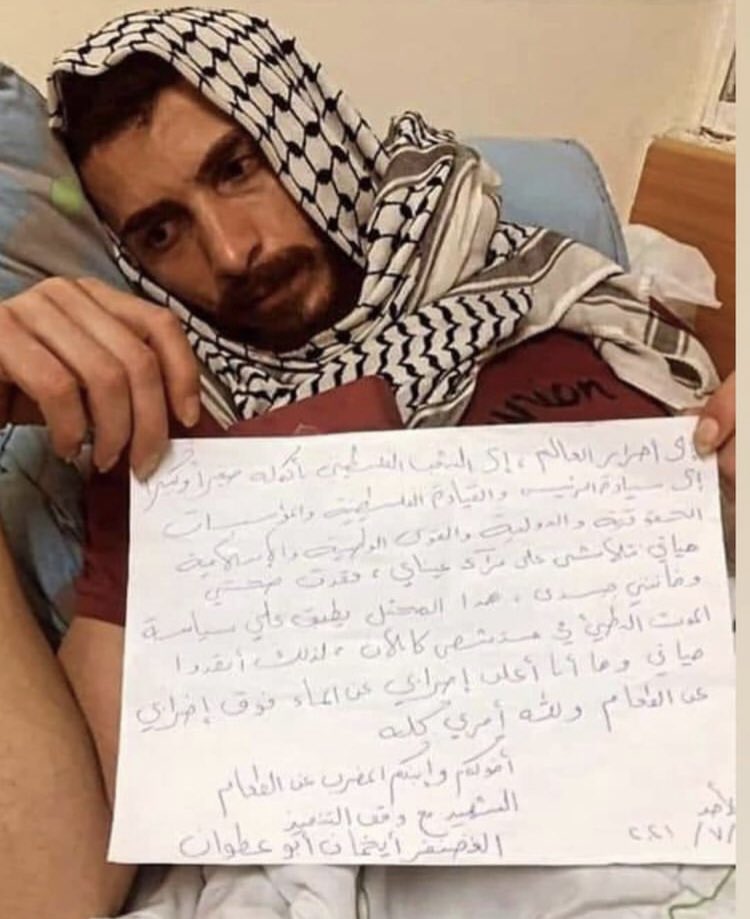 إلى أحرار العالم، إلى الشعب الفلسطيني بأكمله صغيراً وكبيراً
إلى سيادة الرئيس والقيادة الفلسطينية والمؤسسات
الحقوقية والدولية والقوى الوطنية والإسلامية
حياتي تتلاشى على مرآة عيناي، فقدت صحتي
وخانني جسدي، هذا المحتل يطبق علي سياسة
الموت البطيئ في مستشفى كابلان، لذلك أنقذوا
حياتي وها أنا أعلن إضرابي عن الماء فوق إضرابي
عن الطعام ولله أمري كله
أخوكم وإبنكم المضرب عن الطعام
الشهيد مع وقف التنفيذ
الغضنفر أيخمان أبو عطوان
الأحد
/٧/ ٢٠٢١
union